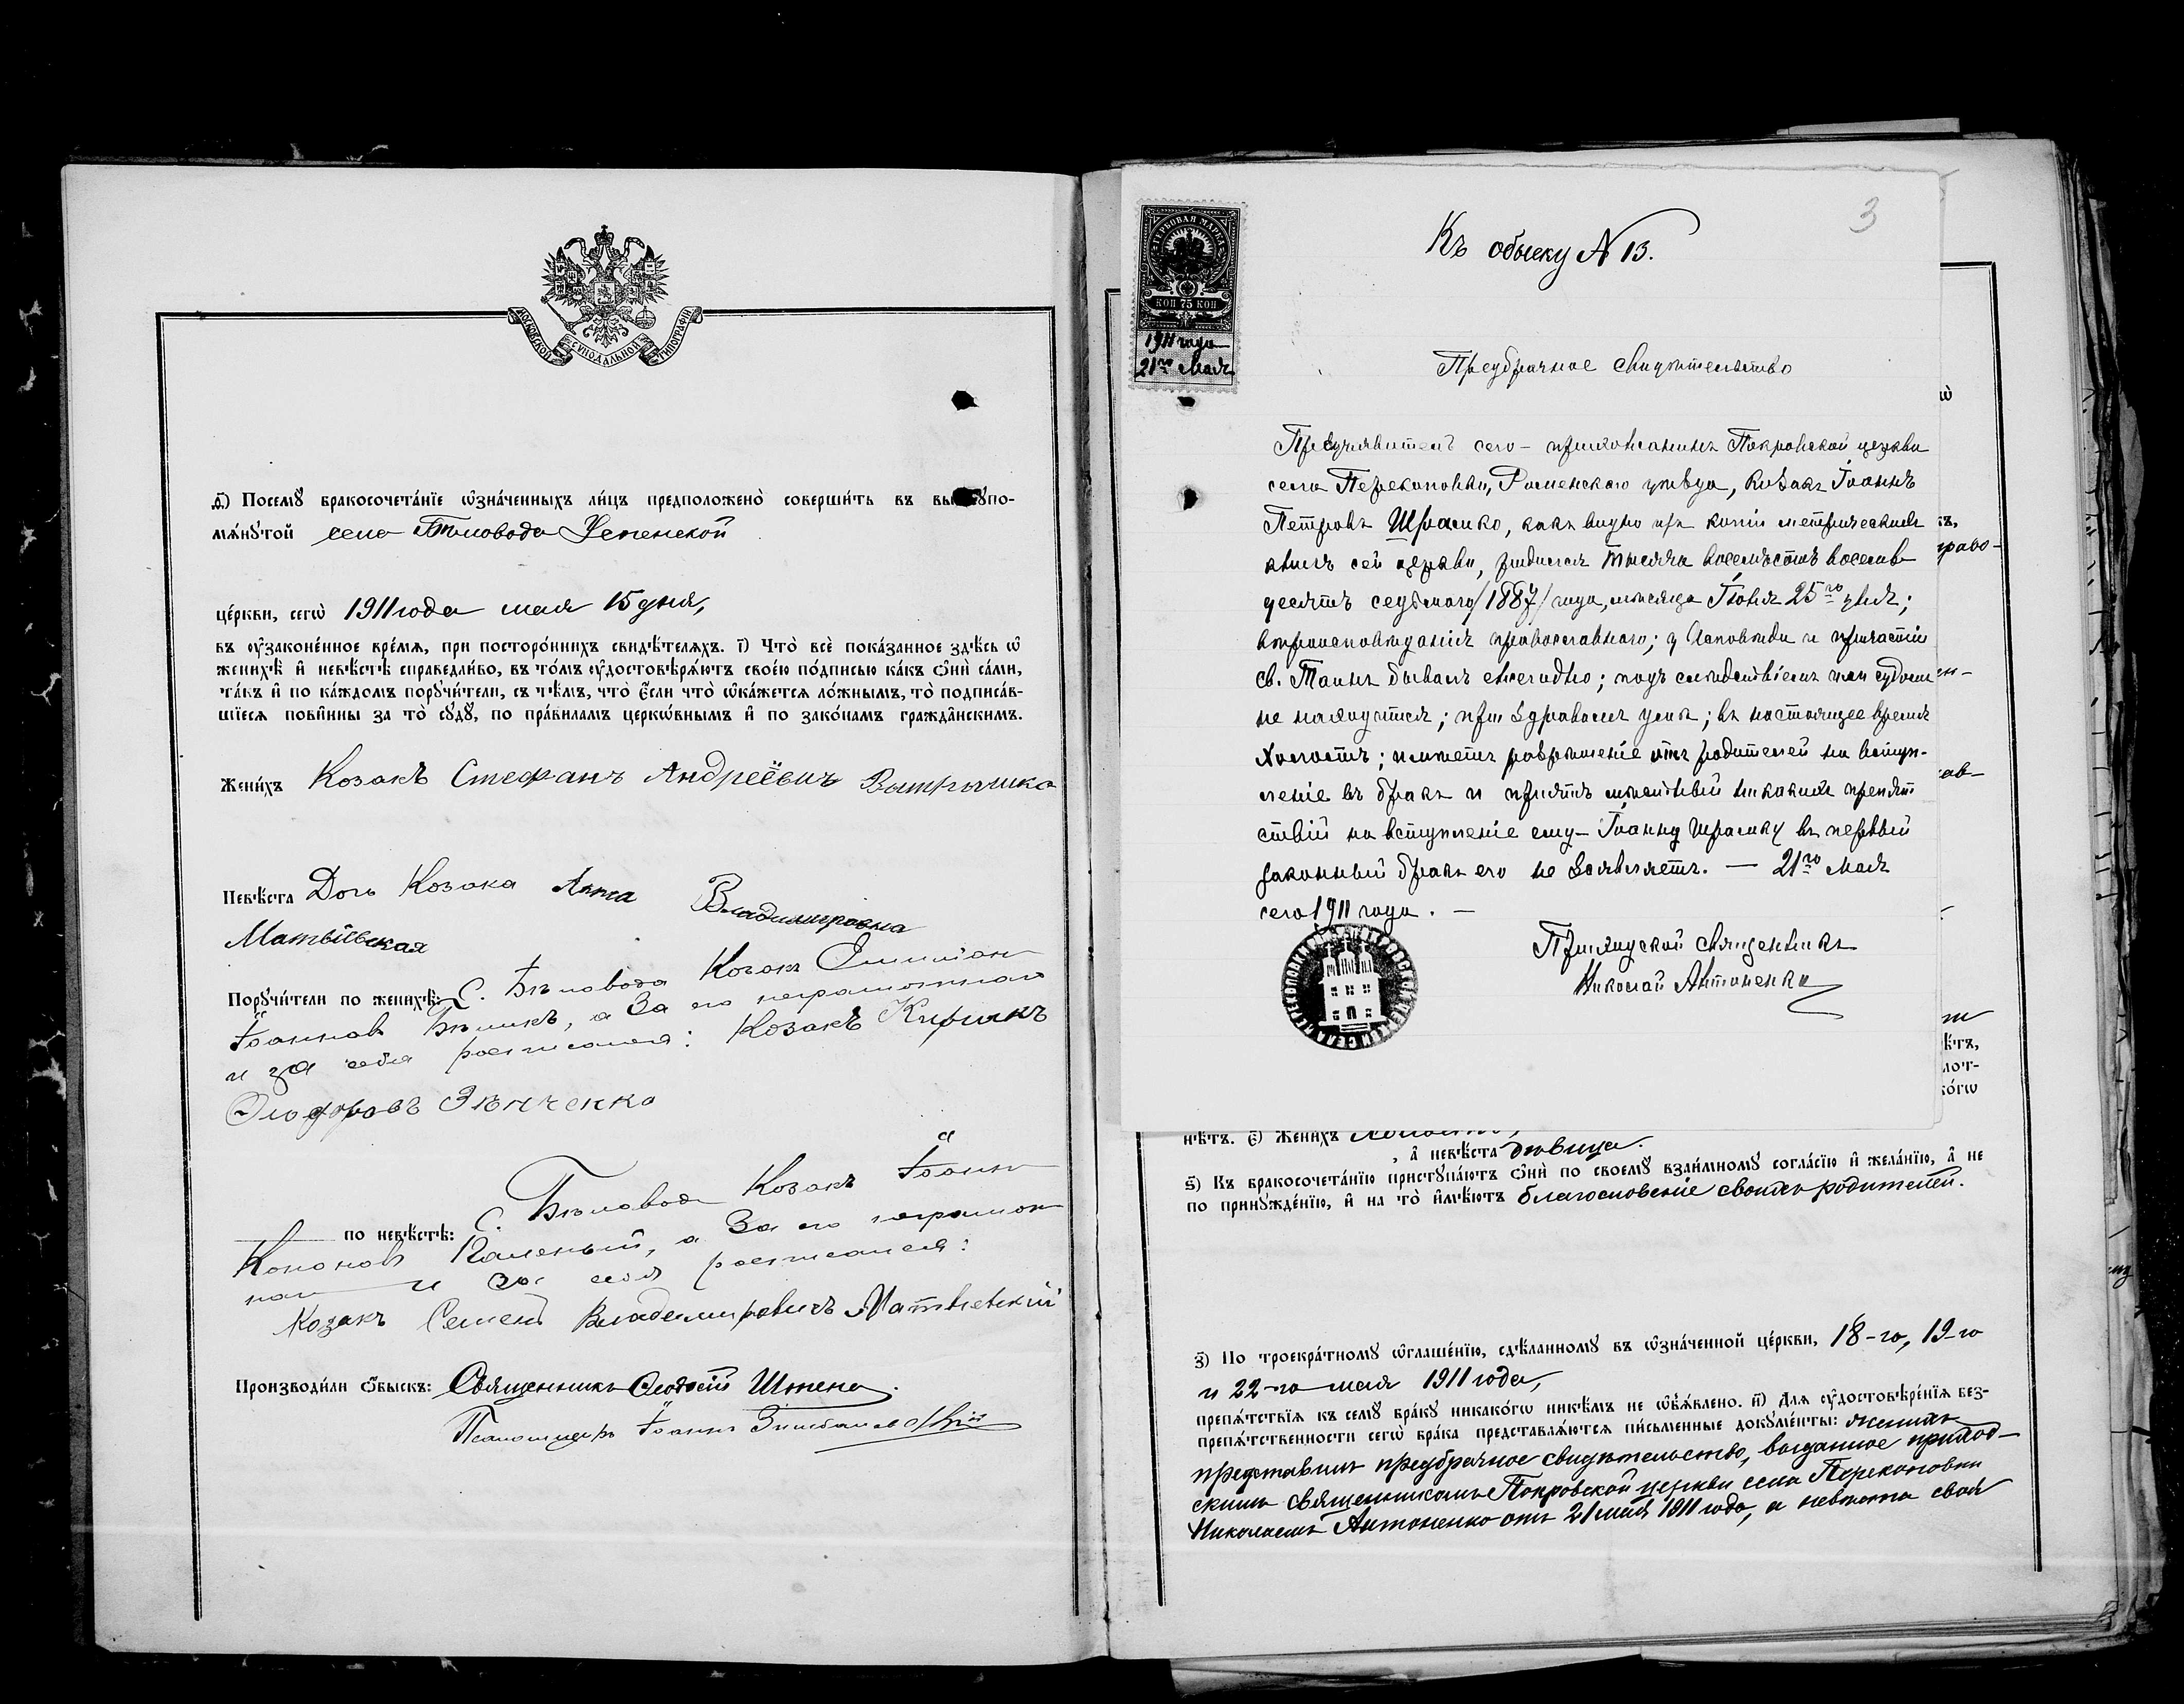 МОСКОВСКОЙ СѴНОДАЛЬНОЙ ТИПОГРАФІИ
д҃) Посемꙋ̀ бракосочета́нїе ѡ҆зна́ченныхъ ли́цъ предположено̀ соверши́ть въ вы
ꙋпо-
мѧ́нꙋтой села Бѣловода Успенской
це́ркви, сегѡ̀ 1911 года мая 15 дня,
въ ᲂу҆законе́нное вре́мѧ, при посторо́ннихъ свидѣ́телѧхъ. і҃) Что̀ всѐ пока́занное здѣ́сь ѡ҆
женихѣ̀ и҆ невѣ́стѣ справедли́во, въ то́мъ ᲂу҆достовѣрѧ́ютъ свое́ю по́дписью ка́къ ѻ҆нѝ са́ми,
та́къ и҆ по ка́ждомъ порꙋчи́тели, съ тѣ́мъ, что̀ є҆́сли что̀ ѡ҆ка́жетсѧ ло́жнымъ, то̀ подписа́в-
шїесѧ пови́нны за то̀ сꙋдꙋ̀, по пра́виламъ церкѡ́внымъ и҆ по зако́намъ гражда̑нскимъ.
Жени́хъ Козакъ Стефанъ Андреёвичъ
Невѣ́ста Дочь Козака Анна Владимировна
Матвіівская
Порꙋчи́тели по женихѣ̀: С. Бѣловода Козакъ Емиліан
Іоаннов Бѣликъ, а За его неграмотнаго
и за себя росписался: Козакъ Кирилъ
Ѳеодоровъ Зѣнченко
по невѣ́стѣ: С. Бѣловода Козакъ Іоанн
Кононовъ Каленый, а За его неграмот
наг и За себя росписался:
Козакъ Семенъ Владемировичъ Матвѣевскій
Производи́ли ѻ҆́быскъ: Священникъ Ѳеодосій
Псаломщикъ Іоаннъ
3
ГЕРБОВАЯ МАРКА
КОП 75 КОП
1911 года
21го Мая
Къ обыску № 13.
Предбрачное свидѣтельство
Предъявитель сего – прихожанинъ Покровской церкви
села Перекоповки, Роменскаго уѣзда, козакъ Іоаннъ
Петровъ Шрамко, какъ видно изъ копіи метрическихъ
книгъ сей церкви, родился тысяча восемьсотъ восемь-
десятъ седьмого /1887/ года, мѣсяца Іюня 25го дня;
вѣроисповѣданія православнаго; у Исповѣди и причастія
св. Таинъ бывалъ ежегодно; подъ слѣдствіемъ или судомъ
не находится; при здравомъ умѣ; въ настоящее время
холостъ; имѣетъ разрѣшеніе отъ родителей на вступ-
леніе въ бракъ и причтъ никакихъ препят
ствій на вступленіе ему – Іоанну Шрамку въ первый
законный бракъ его не заявляетъ. — 21го Мая
сего 1911 года. —
Приходской священникъ
Николай Антоненко
нѣ́тъ. є҃) Жени́хъ
, а҆ невѣ́ста дѣвица.
ѕ҃) Къ бракосочета́нїю пристꙋпа́ютъ ѻ҆нѝ по своемꙋ̀ взаи́мномꙋ согла́сїю и҆ жела́нїю, а҆ не
по принꙋжде́нїю, и҆ на то̀ и҆мѣ́ютъ благословеніе своихъ родителей.
з҃) По троекра́тномꙋ ѡ҆глаше́нїю, сдѣ́ланномꙋ въ ѡ҆зна́ченной це́ркви, 18-го, 19-го
и 22-го мая 1911 года,
препѧ́тствїѧ къ семꙋ̀ бра́кꙋ никако́гѡ никѣ́мъ не ѡ҆б̾ѧ́влено. и҃) Длѧ ᲂу҆достовѣре́нїѧ без-
препѧ́тственности сегѡ̀ бра́ка представлѧ́ютсѧ пи́сьменные докꙋме́нты: женихъ
представилъ предбрачное свидѣтельство, выданное приход-
скимъ священникомъ Покровской церкви села Перекоповки
Николаемъ Антоненко отъ 21 мая 1911 года, а невѣста свой